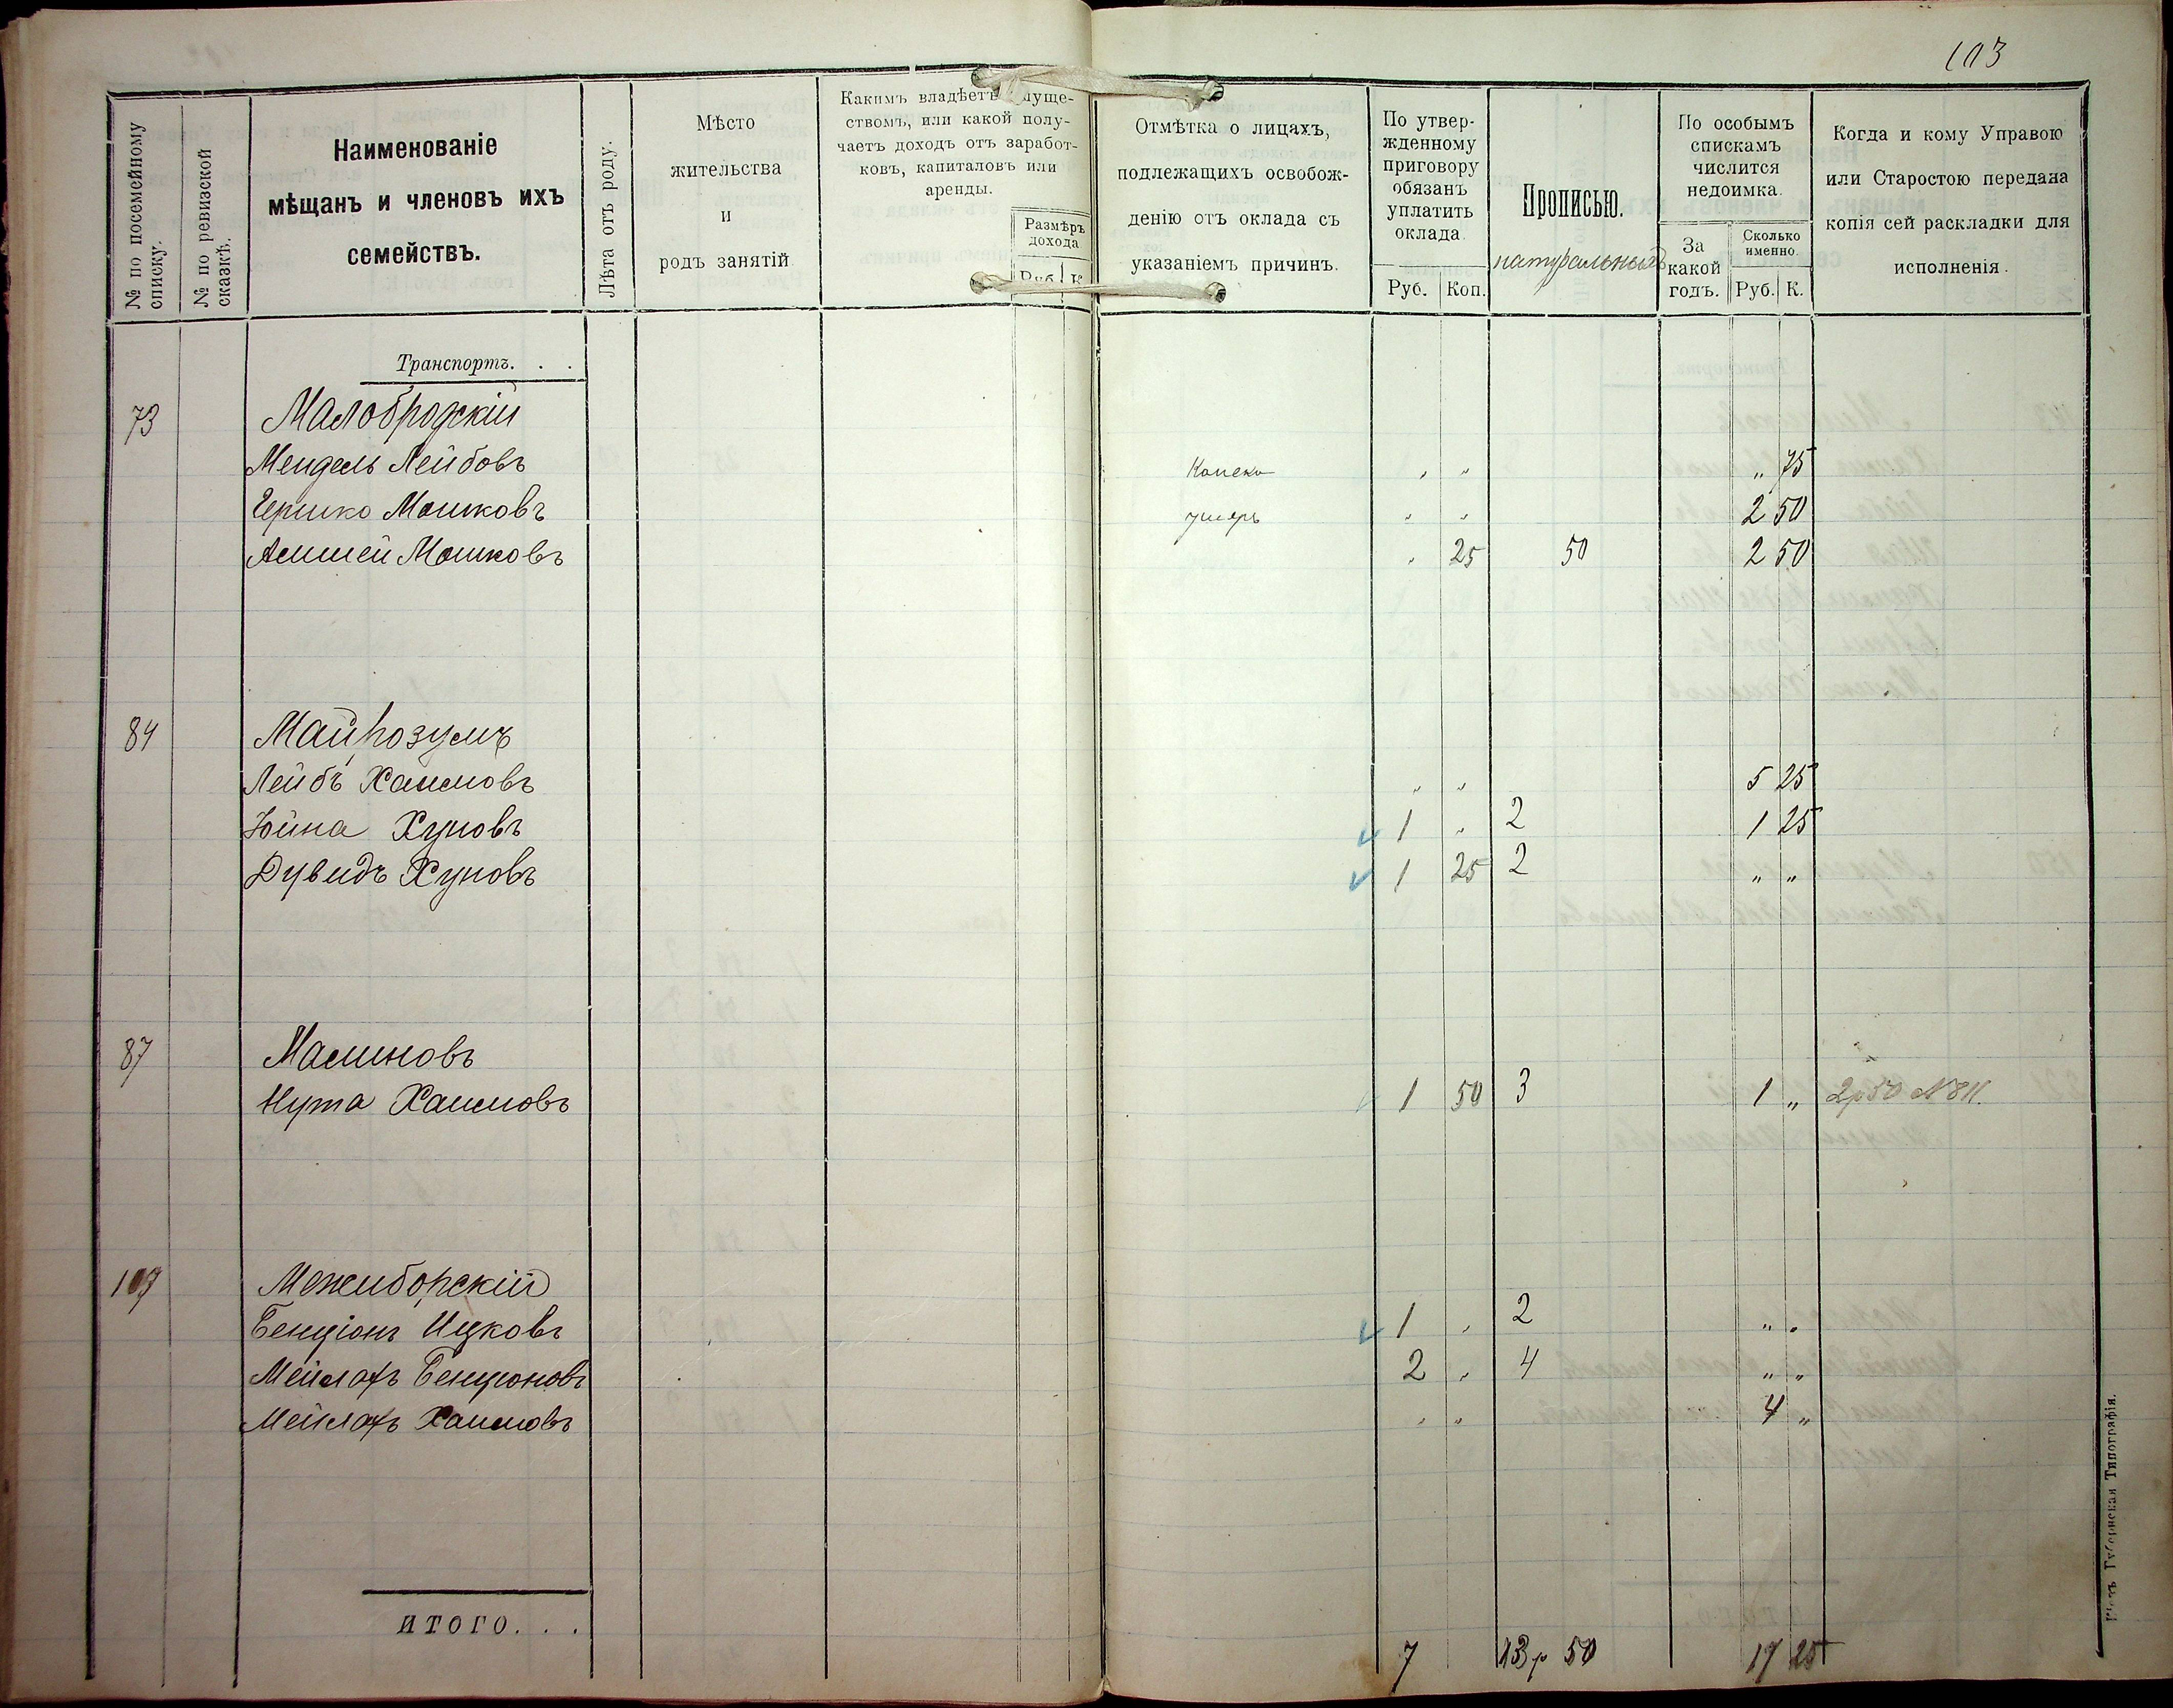 103
№ по посемейному списку.
№ по ревизской сказкѣ.
Наименованіе
мѣщанъ и членовъ ихъ
семействъ.
Лѣта отъ роду.
Мѣсто
жительства
и
родъ занятій
Какимъ владѣетъ
ствомъ, или какой полу-
чаетъ доходъ отъ заработ-
ковъ, капиталовъ или
аренды.
Размѣръ
дохода
Руб. К
Отмѣтка о лицахъ,
подлежащихъ освобож-
денію отъ оклада съ
указаніемъ причинъ.
По утвер-
жденному
приговору
обязанъ
уплатить
оклада
Руб. Коп.
Прописью.
натуральный
По особымъ
спискамъ
числится
недоимка.
За
какой
годъ.
Сколько
именно.
Руб. К.
Когда и кому Управою
или Старостою передана
копія сей раскладки для
исполненія.
Транспортъ. . .
73 Малобродскій
Мендель Лейбовъ " " " 75
Гершко Мошковъ умеръ " " 2 50
Мошковъ " 25 50 2 50
84
Лейбъ Хаимовъ " " 5 25
Юйна Хуновъ 1 " 2 1 25
Дувидъ Хуновъ 1 25 2 " "
87 Малиновъ
Нута Хаимовъ 1 50 3 1 " 2р50 №811.
107 Межиборскій
Бенціонъ Ицковъ 1 " 2 " "
Мейлахъ Бенціоновъ 2 " 4 " "
Мейлахъ Хаимовъ " " 4 "
ИТОГО. . . 7 13р 50 17 25
Губернская Типографія.